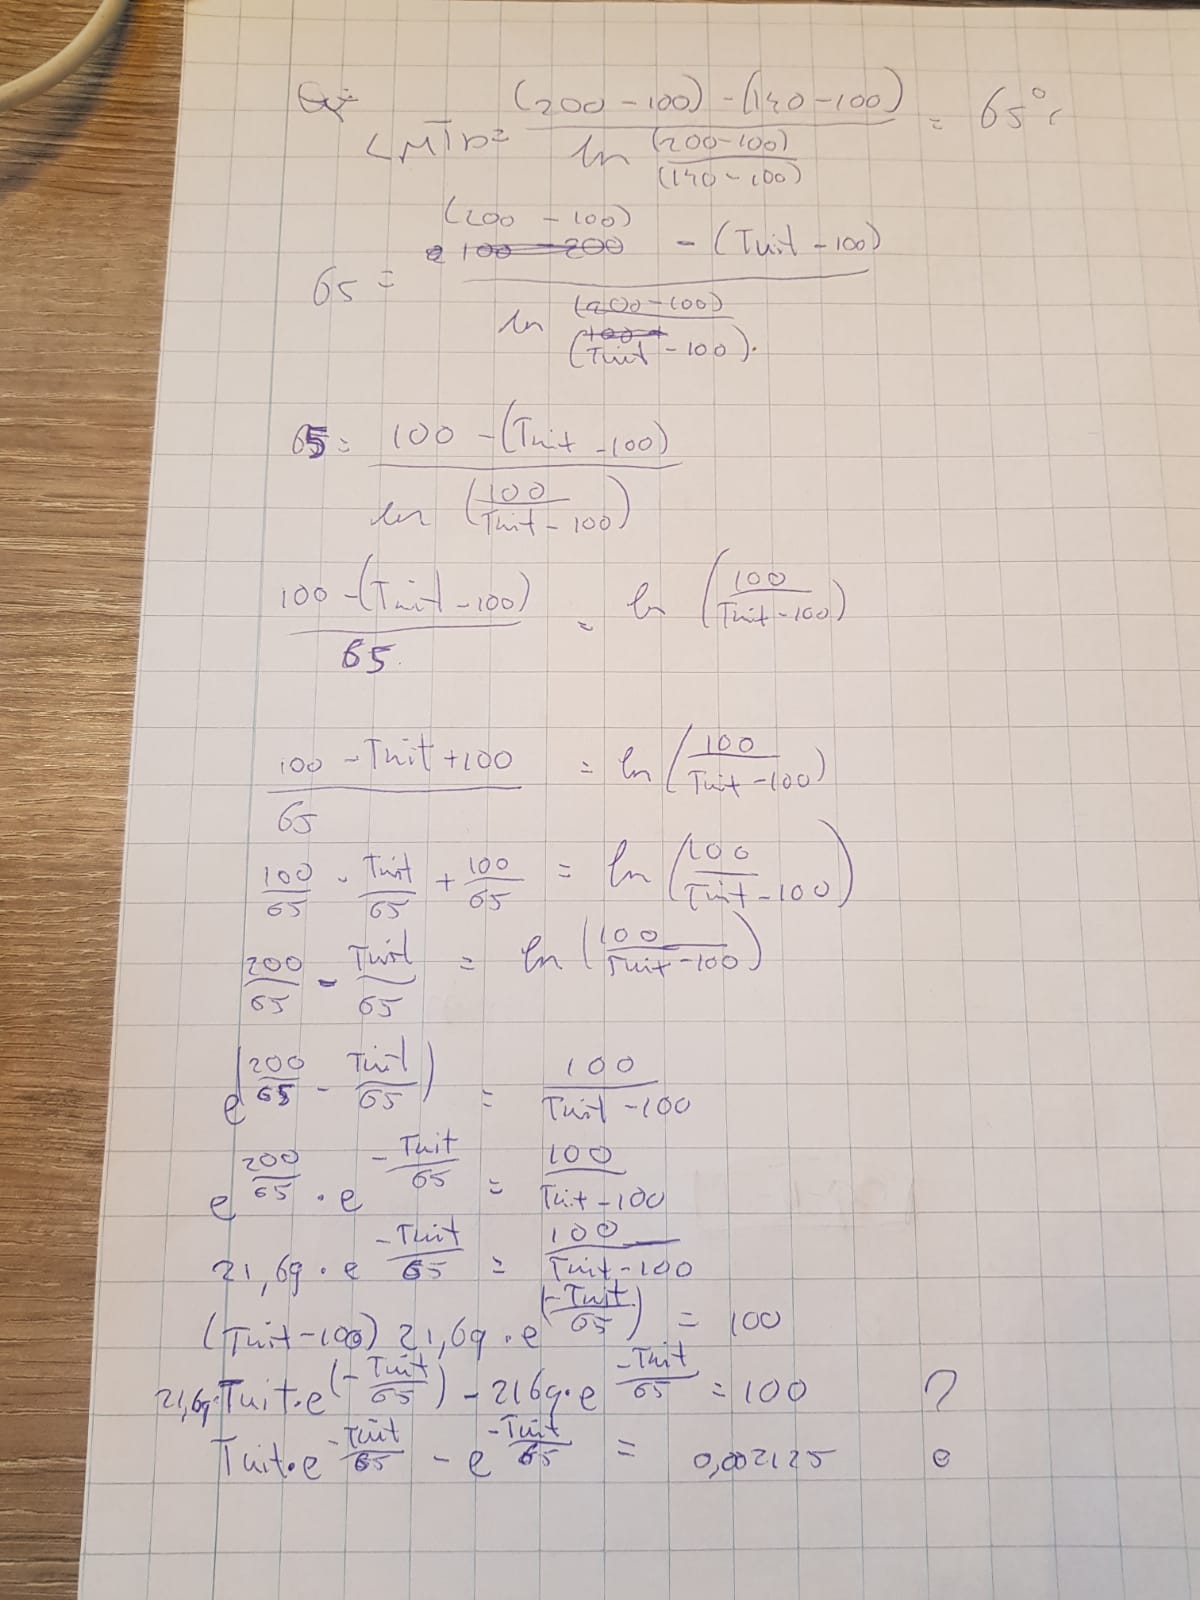 LMTD = ((200 - 100) - (140 - 100)) / (ln (200 - 100)/(140 - 100)) = 65°C
65 = ((200 - 100) - (Tuit - 100)) / (ln (200 - 100)/(Tuit - 100)).
65 = (100 - (Tuit - 100)) / (ln (100/(Tuit - 100)))
(100 - (Tuit - 100)) / 65. = ln (100/(Tuit - 100))
(100 - Tuit + 100) / 65 = ln (100/(Tuit - 100))
100/65 - Tuit/65 + 100/65 = ln (100/(Tuit - 100))
200/65 - Tuit/65 = ln (100/(Tuit - 100))
e^(200/65 - Tuit/65) = 100/(Tuit - 100)
e^(200/65) · e^(-Tuit/65) = 100/(Tuit - 100)
21,69 · e^(-Tuit/65) = 100/(Tuit - 100)
(Tuit - 100) 21,69 · e^(-Tuit/65) = 100
21,69 · Tuit · e^(-Tuit/65) - 2169 · e^(-Tuit/65) = 100 ?
Tuit · e^(-Tuit/65) - e^(-Tuit/65) = 0,002125